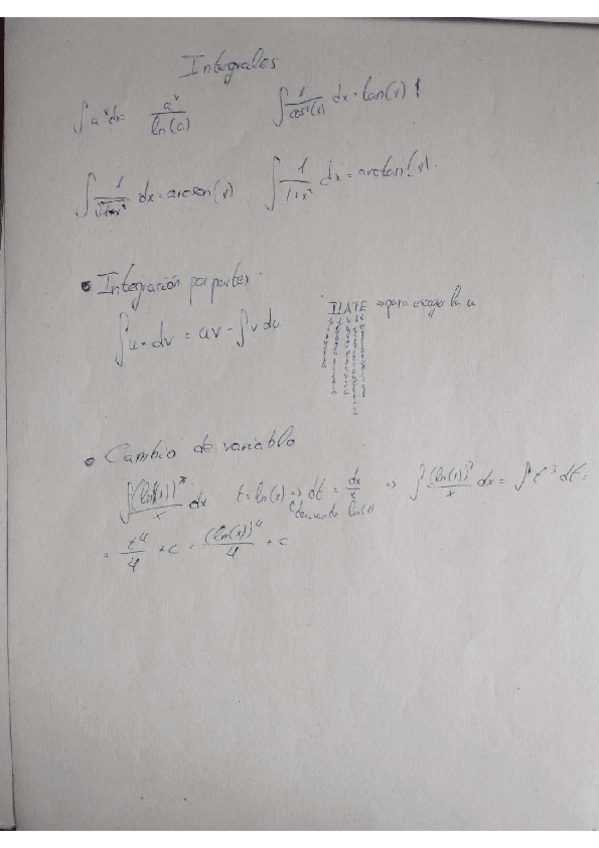 Integrales
∫ a^x dx = a^x / ln(a)    ∫ 1/cos²(x) dx = tan(x)
∫ 1/√(1-x²) dx = arcsen(x)    ∫ 1/(1+x²) dx = arctan(x).
• Integración por partes
∫ u · dv = uv - ∫ v du    ILATE → para escoger la u
• Cambio de variable
∫ (ln(x))³/x dx    t = ln(x) ⇒ dt = dx/x ⇒ ∫ (ln(x))³/x dx = ∫ t³ dt =
derivando ln(x)
= t⁴/4 + c = (ln(x))⁴/4 + c